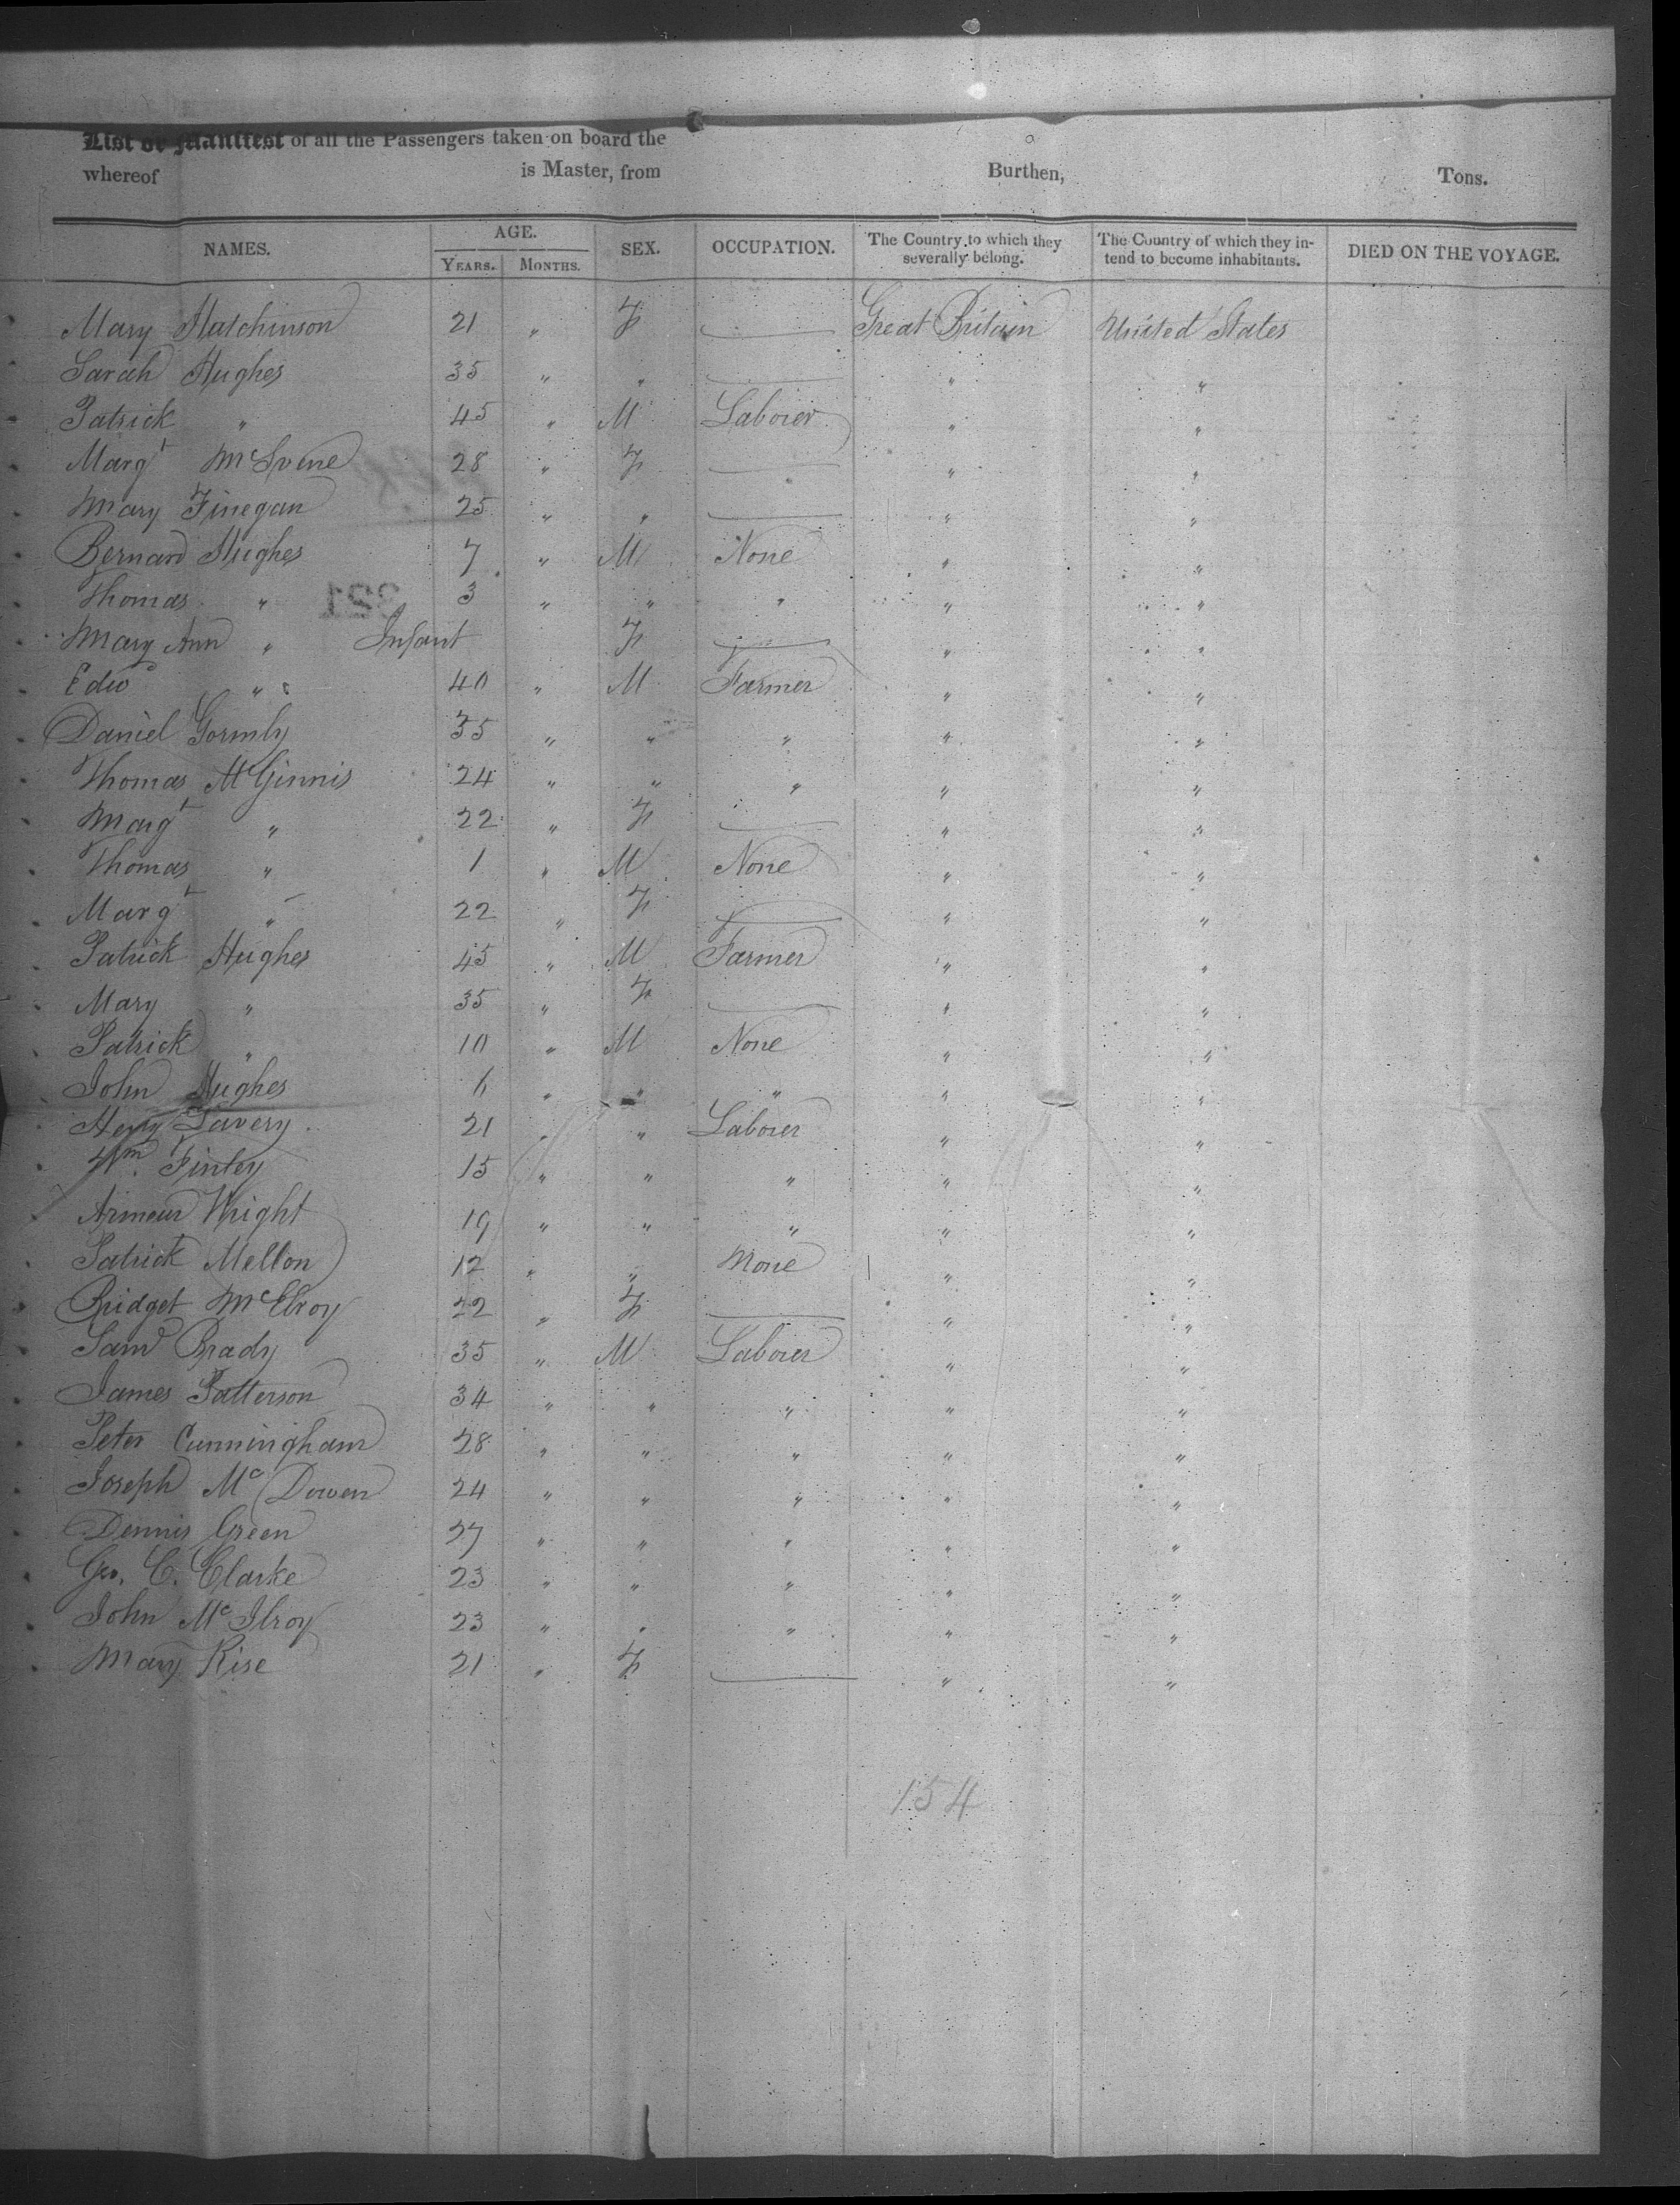 List or Manifest of all the Passengers taken on board the
whereof is Master, from Burthen, Tons.
NAMES. AGE. SEX. OCCUPATION. The Country to which they severally belong. The Country of which they intend to become inhabitants. DIED ON THE VOYAGE.
YEARS. MONTHS.
Mary Hutchinson 21 " F — Great Britain United States
Sarah Hughes 35 " " — " "
Patrick " 45 " M Laborer " "
Margt 28 " F — " "
Mary Finegan 25 " " — " "
Bernard Hughes 7 " M None " "
Thomas " 3 " " " " "
321
Mary Ann " Infant F — " "
Edwd " 40 " M Farmer " "
Daniel Gormly 35 " " " " "
Thomas McGinnis 24 " " " " "
Margt " 22 " F — " "
Thomas " 1 " M None " "
Margt " 22 " F — " "
Patrick Hughes 45 " M Farmer " "
Mary " 35 " F — " "
Patrick " 10 " M None " "
John Hughes 6 " " " " "
Heny Lavery 21 " " Laborer " "
Wm. Finley 15 " " " " "
Armour Wright 19 " " " " "
Patrick Mellon 12 " " None " "
Bridget McElroy 22 " F — " "
Saml Brady 35 " M Laborer " "
James Patterson 34 " " " " "
Peter Cunningham 28 " " " " "
Joseph McDowen 24 " " " " "
Dennis Green 27 " " " " "
Geo. C. Clarke 23 " " " " "
John McIlroy 23 " " " " "
Mary Rise 21 " F — " "
154